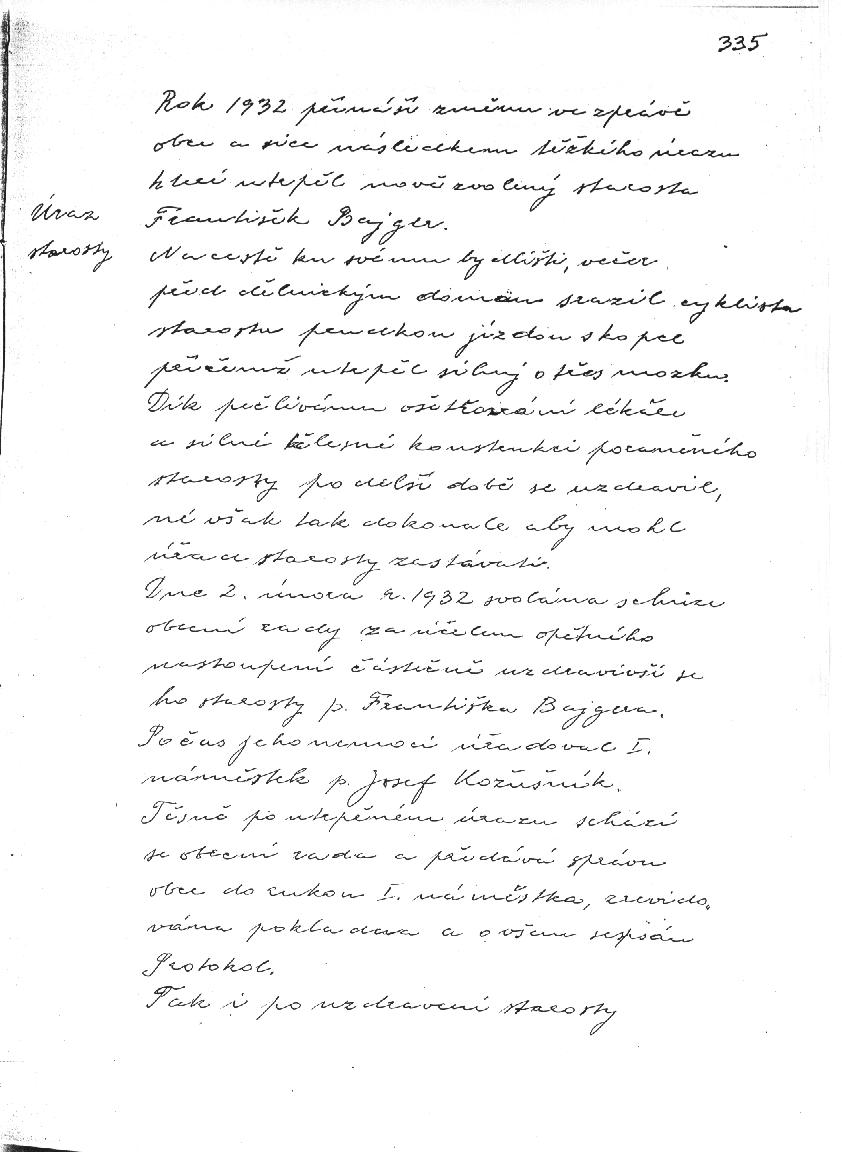 335
Rok 1932 přináší změnu ve zprávě
obce a sice následkem těžkého úrazu
který utrpěl nově zvolený starosta
Úraz
starosty
František Bajger.
Na cestě ku svému bydlišti, večer
před dělnickým domem srazil cyklista
starostu prudkou jízdou s kopce
přičemž utrpěl silný otřes mozku.
Dík pečlivému ošetřování lékaře
a silné tělesné konstrukci poraněného
starosty po delší době se uzdravil,
né však tak dokonale aby mohl
úřad starosty zastávati.
Dne 2. února r. 1932 svolána schůze
obecní rady za účelem opětného
nastoupení částečně uzdravivší se
ho starosty p. Františka Bajgera.
Počas jeho nemoci úřadoval I.
náměstek p. Josef Kožušník.
Těsně po utrpěném úrazu schází
se obecní rada a předává správu
obce do rukou I. náměstka, zrevido-
vána pokladna a o všem sepsán
Protokol.
Tak i po uzdravení starosty